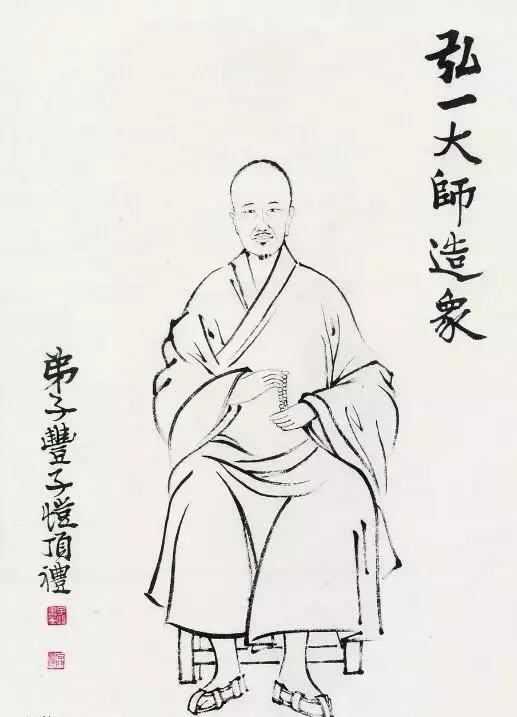 弘一大師造象
弟子豐子愷頂禮